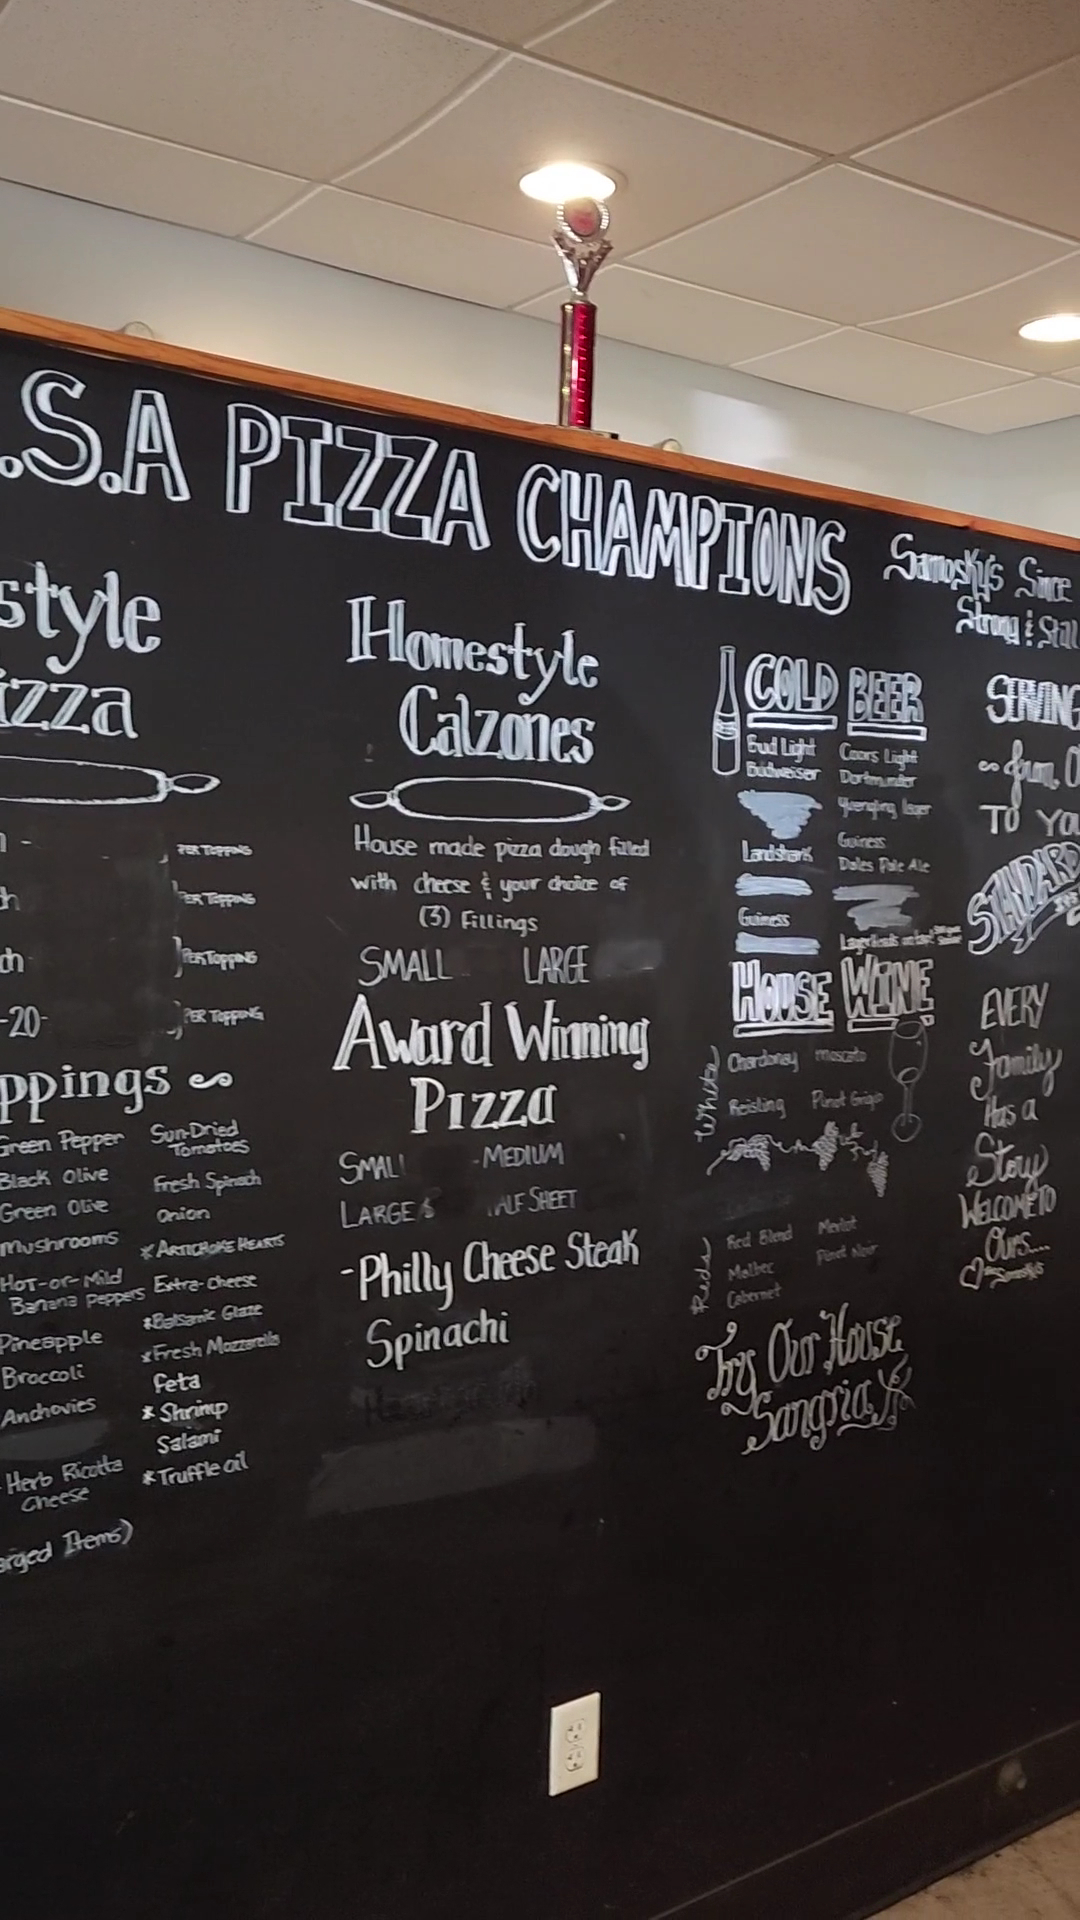 .S.A PIZZA CHAMPIONS
style
izza
PER TOPPING
ch
PER TOPPING
ch
PER TOPPING
-20-
PER TOPPING
ppings
Green Pepper
Black Olive
Green Olive
Mushrooms
Hot-or-Mild
Banana Peppers
Pineapple
Broccoli
Anchovies
Herb Ricotta
Cheese
arged Items)
Sun-Dried
Tomatoes
Fresh Spinach
Onion
*ARTICHOKE HEARTS
Extra-cheese
*Balsamic Glaze
*Fresh Mozzarella
Feta
* Shrimp
Salami
*Truffle oil
Homestyle
Calzones
House made pizza dough filled
with cheese & your choice of
(3) Fillings
SMALL LARGE
Award Winning
Pizza
SMALL -MEDIUM
LARGE HALF SHEET
-Philly Cheese Steak
Spinachi
COLD BEER
Bud Light
Budweiser
Landshark
Guiness
Coors Light
Dortmunder
Yuengling lager
Guiness
Dales Pale Ale
HOUSE WINE
White
Chardonay moscato
Reisling Pinot Grigio
Reds
Red Blend Merlot
Malbec Pinot Noir
Cabernet
Try Our House
Sangria
Samosky's Since
Strong & Still
SERVING
from O
TO YOU
STANDARD
EVERY
Family
Has a
Story
WELCOME TO
Ours....
Samosky's